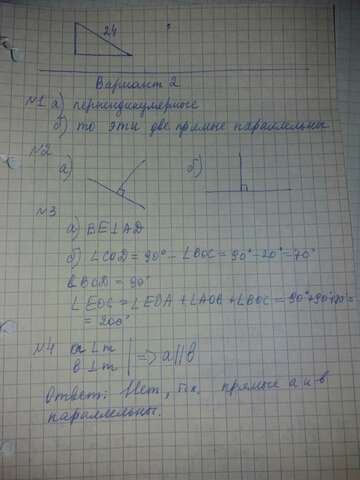 24
Вариант 2
№1 а) перпендикулярные
б) то эти две прямые параллельны
№2
а) б)
№3
а) BE⊥AD
б) ∠COD = 90° - ∠BOC = 90° - 20° = 70°
∠BOD = 90°
∠EOC = ∠EOA + ∠AOB + ∠BOC = 90°+90°+20°=
= 200°
№4 a⊥m
в⊥m | => a||в
Ответ: Нет, т.к. прямые а и в
параллельны.